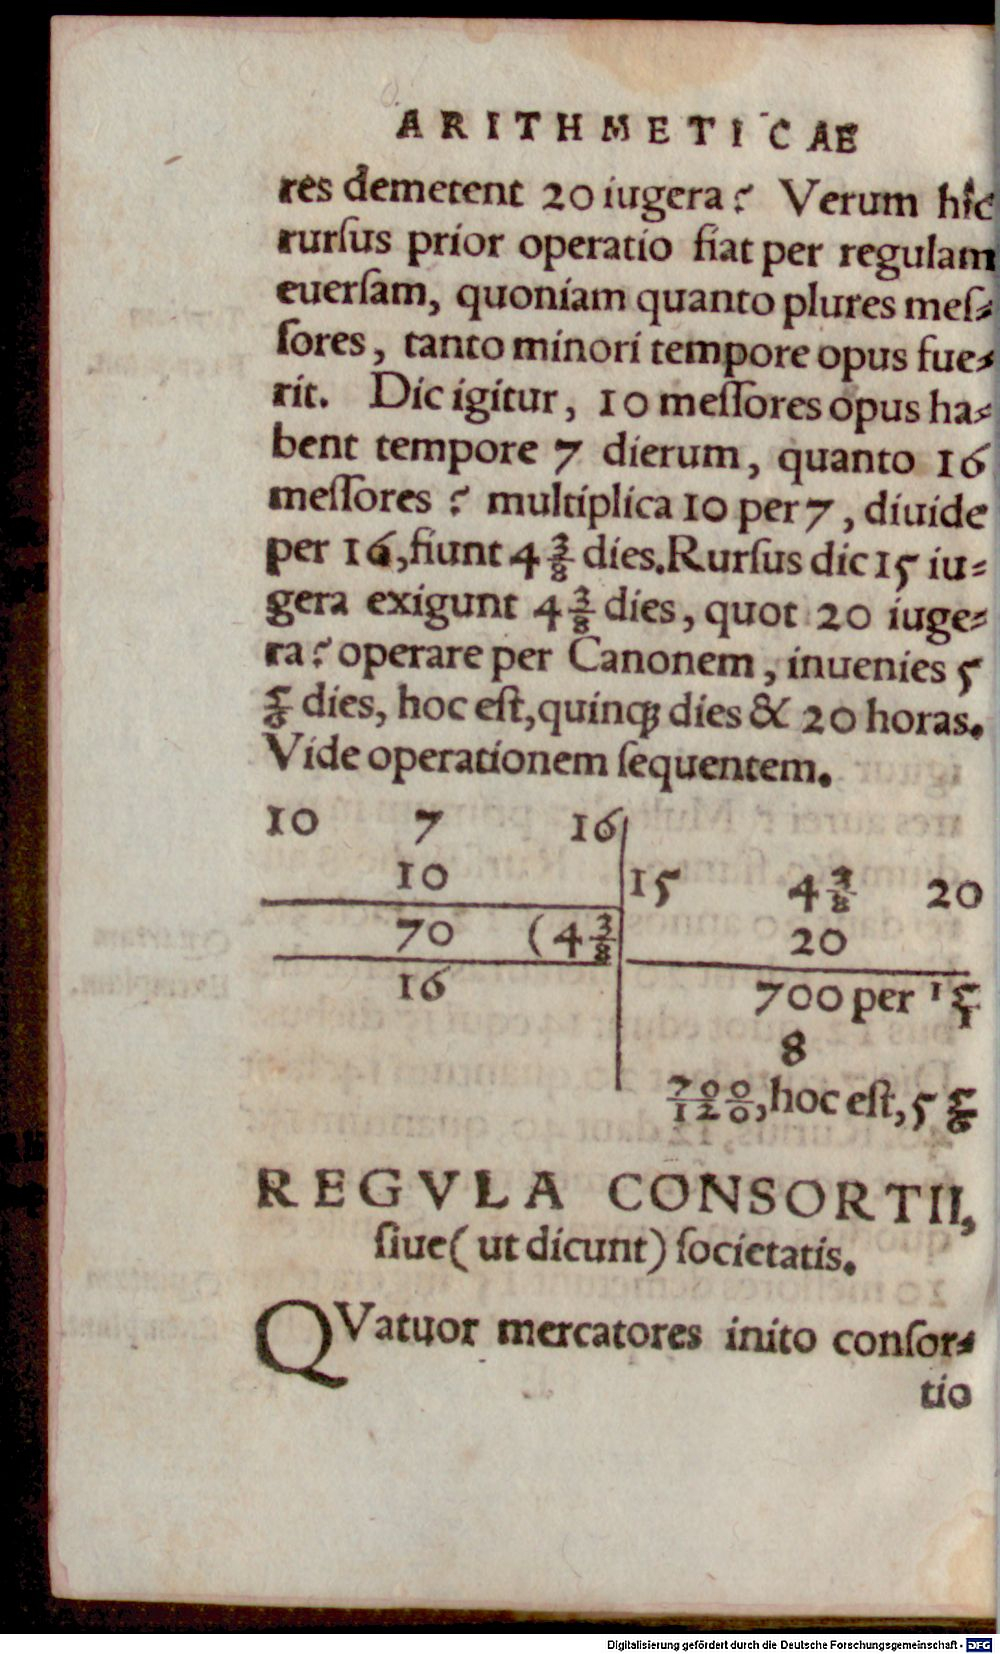 ARITHMETICAE
res demetent 20 iugera? Verum hîc
rurſus prior operatio fiat per regulam
euerſam, quoniam quanto plures meſ-
ſores, tanto minori tempore opus fue-
rit. Dic igitur, 10 meſſores opus ha-
bent tempore 7 dierum, quanto 16
meſſores? multiplica 10 per 7, diuide
per 16, fiunt 4 3/8 dies. Rurſus dic 15 iu-
gera exigunt 4 3/8 dies, quot 20 iuge-
ra? operare per Canonem, inuenies 5
5/6 dies, hoc eſt, quinq; dies & 20 horas.
Vide operationem ſequentem.
10 7 16
10
70 (4 3/8
16
15 4 3/8 20
20
700 per 15/1
8
700/120, hoc eſt, 5 5/6
REGVLA CONSORTII,
ſiue (ut dicunt) ſocietatis.
QVatuor mercatores inito conſor-
tio
Digitalisierung gefördert durch die Deutsche Forschungsgemeinschaft - DFG